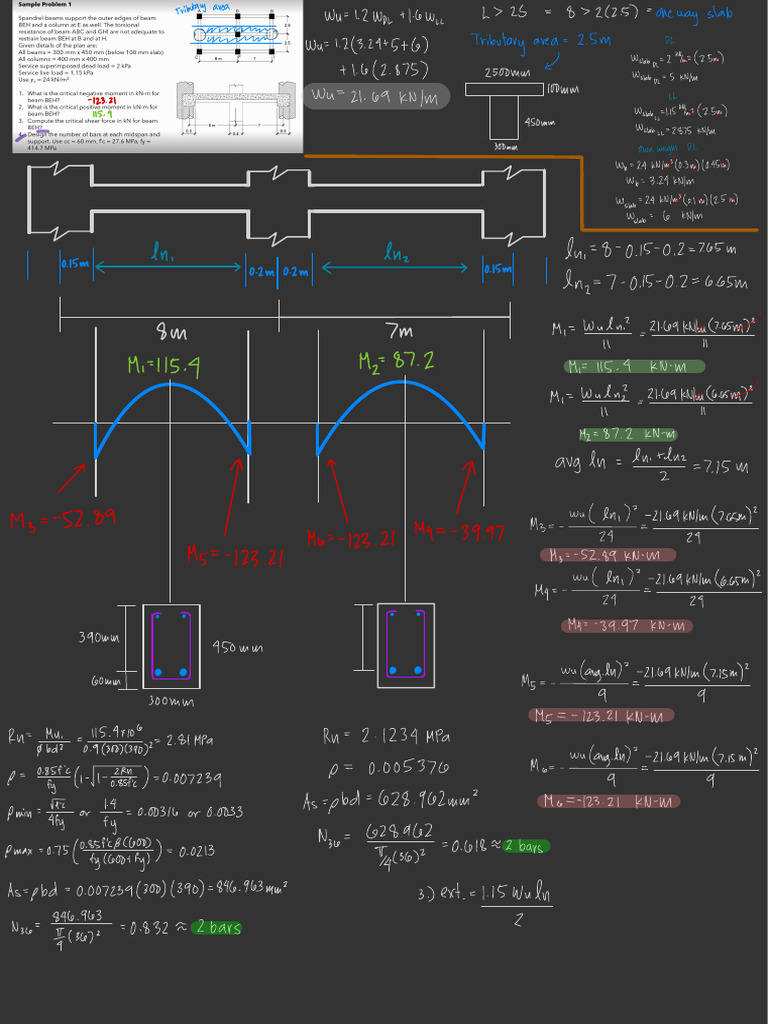 Sample Problem 1
Spandrel beams support the outer edges of beam
BEH and a column at E as well. The torsional
resistance of beam ABC and GHI are not adequate to
restrain beam BEH at B and at H.
Given details of the plan are:
All beams = 300 mm x 450 mm (below 100 mm slab)
All columns = 400 mm x 400 mm
Service superimposed dead load = 2 kPa
Service live load = 1.15 kPa
Use γc = 24 kN/m³
1. What is the critical negative moment in kN·m for
beam BEH? -123.21
2. What is the critical positive moment in kN·m for
beam BEH? 115.4
3. Compute the critical shear force in kN for beam
BEH?
4. Design the number of bars at each midspan and
support. Use cc = 60 mm, f'c = 27.6 MPa, fy =
414.7 MPa
Tributary area
Wu = 1.2 WDL + 1.6 WLL
Wu = 1.2(3.24+5+6)
+ 1.6(2.875)
Wu = 21.69 kN/m
L > 2S = 8 > 2(2.5) = one way slab
Tributary area = 2.5m
2500mm
100mm
450mm
300mm
DL
Wslab DL = 2 kN/m² (2.5m)
Wslab DL = 5 kN/m
LL
Wslab LL = 1.15 kN/m² (2.5m)
Wslab LL = 2.875 kN/m
Own weight DL
WB = 24 kN/m³ (0.3m)(0.45m)
WB = 3.24 kN/m
Wslab = 24 kN/m³ (0.1m)(2.5m)
Wslab = 6 kN/m
0.15m
ln₁
0.2m
0.2m
ln₂
0.15m
8m
7m
M₁=115.4
M₂= 87.2
M₃=-52.89
M₅=-123.21
M₆=-123.21
M₄=-39.97
390mm
60mm
450mm
300mm
ln₁ = 8 - 0.15 - 0.2 = 7.65m
ln₂ = 7 - 0.15 - 0.2 = 6.65m
M₁ = Wu ln₁² / 11 = 21.69 kN/m (7.65m)² / 11
M₁ = 115.4 kN·m
M₁ = Wu ln₂² / 11 = 21.69 kN/m (6.65m)² / 11
M₂ = 87.2 kN-m
avg ln = ln₁ + ln₂ / 2 = 7.15 m
M₃ = - wu( ln₁ )² / 24 = -21.69 kN/m (7.65m)² / 24
M₃ = -52.89 kN-m
M₄ = - wu( ln₁ )² / 24 = -21.69 kN/m (6.65m)² / 24
M₄ = -39.97 kN-m
M₅ = - wu(avg.ln)² / 9 = -21.69 kN/m (7.15m)² / 9
M₅ = -123.21 kN-m
M₆ = - wu(avg.ln)² / 9 = -21.69 kN/m (7.15m)² / 9
M₆ = -123.21 kN-m
Rn = Mu₁ / ϕbd² = 115.4×10⁶ / 0.9(300)(390)² = 2.81 MPa
ρ = 0.85f'c / fy (1 - √(1 - 2Rn / 0.85f'c)) = 0.007239
ρmin = √f'c / 4fy or 1.4 / fy = 0.00316 or 0.0033
ρmax = 0.75 (0.85f'c β(600) / fy(600+fy)) = 0.0213
As = ρbd = 0.007239(300)(390) = 846.963 mm²
N36 = 846.963 / π/4 (36)² = 0.832 ≈ 2 bars
Rn = 2.1234 MPa
ρ = 0.005376
As = ρbd = 628.962 mm²
N36 = 628.962 / π/4 (36)² = 0.618 ≈ 2 bars
3.) ext. = 1.15 wu ln / 2